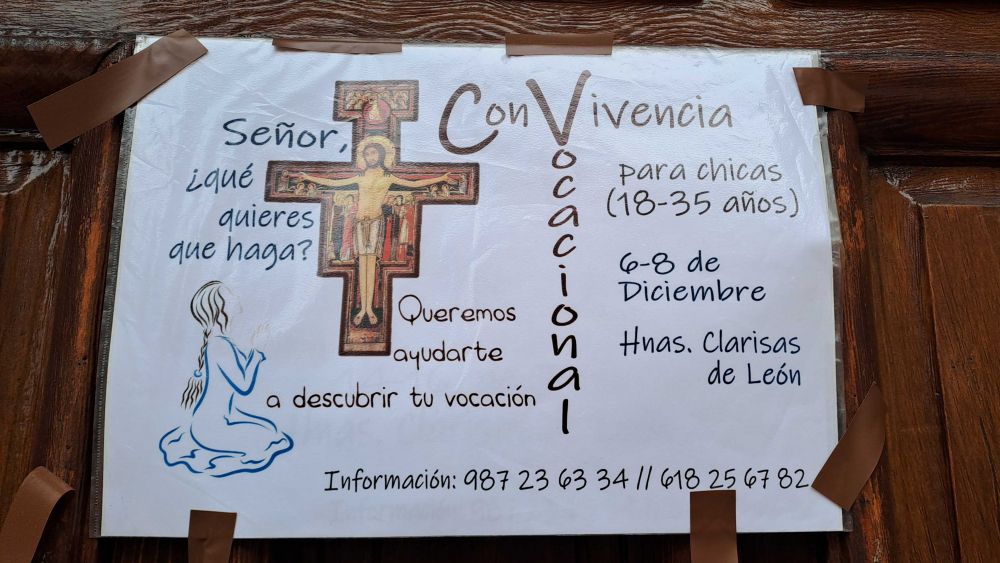 Señor,
¿qué
quieres
que haga?
ConVivencia
Vocacional
para chicas
(18-35 años)
6-8 de
Diciembre
Hnas. Clarisas
de León
Queremos
ayudarte
a descubrir tu vocación
Información: 987 23 63 34 // 618 25 67 82